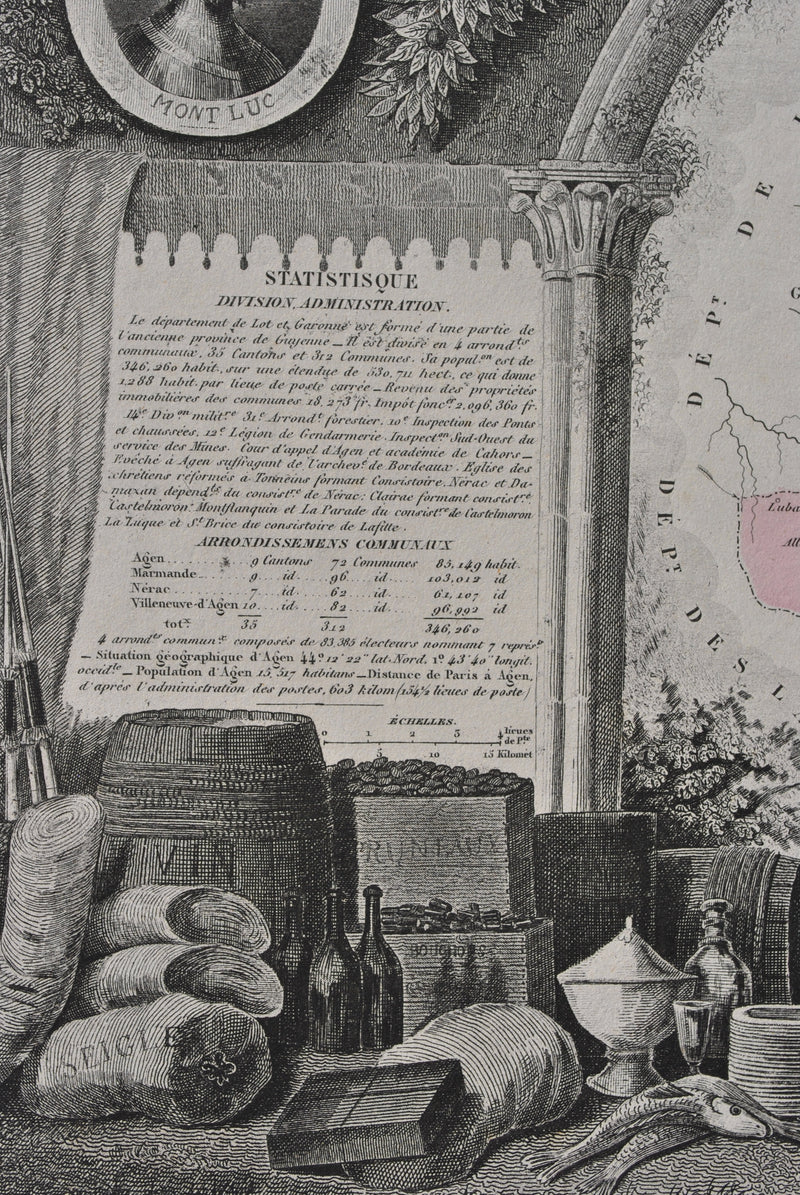 MONT LUC
STATISTISQUE
DIVISION, ADMINISTRATION.
Le département de Lot et Garonne est formé d'une partie de
l'ancienne province de Guyenne — Il est divisé en 4 arrond.ts
communaux, 35 Cantons et 312 Communes. Sa popul.on est de
346,260 habit, sur une étendue de 530,711 hect, ce qui donne
1,288 habit. par lieue de poste carrée — Revenu des propriétés
immobilières des communes 18,273 fr. Impôt fonc.er 2,096,360 fr.
14.e Div.on milit.re 31.e Arrond.t forestier, 10.e Inspection des Ponts
et chaussées, 12.e Légion de Gendarmerie. Inspect.on Sud-Ouest du
service des Mines. Cour d'appel d'Agen et académie de Cahors —
Evêché à Agen suffragant de l'archev.é de Bordeaux. Eglise des
chrétiens réformés à Tonneins formant Consistoire, Nérac et Da-
mazan dépend.ts du consist.re de Nérac. Clairac formant consist.re
Castelmoron, Montflanquin et La Parade du consist.re de Castelmoron
La Tuque et S.t Brice du consistoire de Lafitte.
ARRONDISSEMENS COMMUNAUX
Agen........ 9 Cantons 72 Communes 85,149 habit.
Marmande.... 9...id. 96....id..... 103,012 id
Nérac....... 7...id. 62....id..... 61,107 id
Villeneuve-d'Agen 10...id. 82....id..... 96,992 id
tot.x 35 312 346,260
4 arrond.ts commun.x composés de 83,385 électeurs nommant 7 représ.ts
— Situation géographique d'Agen 44° 12' 22" lat. Nord, 1° 43' 40" longit.
occid.le — Population d'Agen 15,517 habitans — Distance de Paris à Agen,
d'après l'administration des postes, 603 kilom (154½ lieues de poste)
ÉCHELLES.
0 1 2 3 4 lieues
de P.te
5 10 15 Kilomèt
VIN
PRUNEAUX
BOUCHONS
SEIGLE
DÉP.t DE
DÉP.t DES L
G
Luba
All